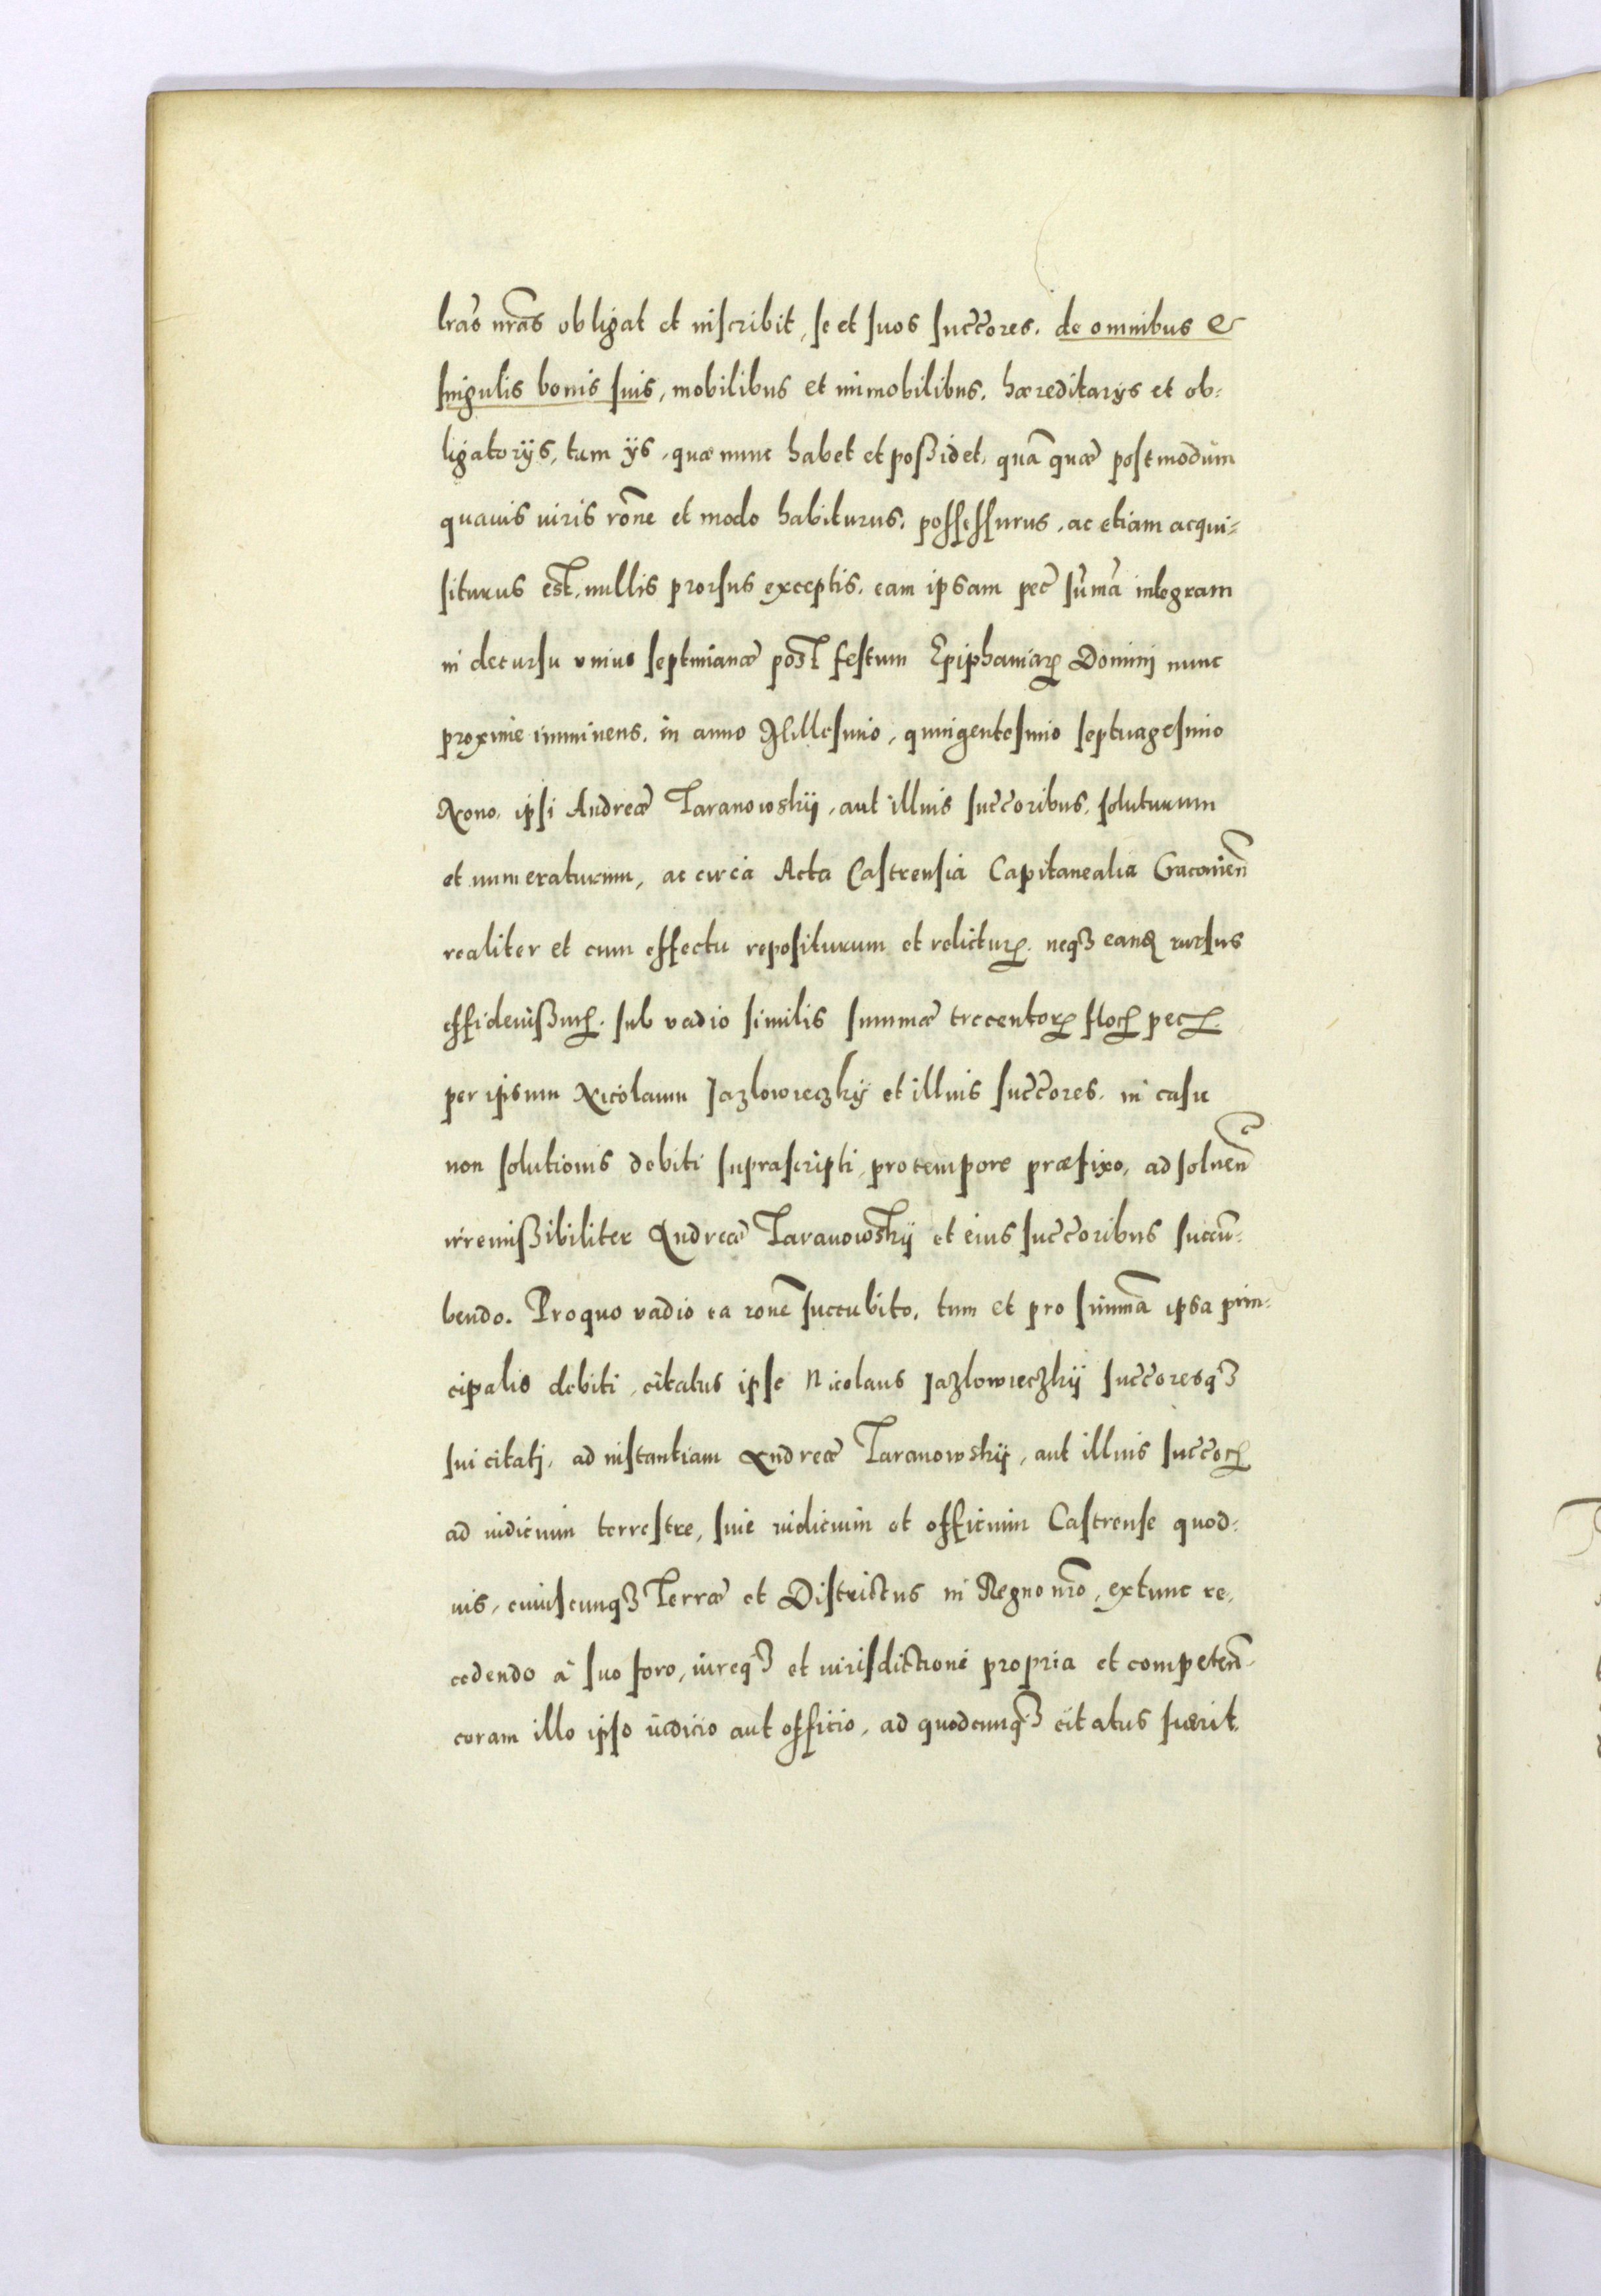 lras nras obligat et inscribit, se et suos succores. de omnibus &
singulis bonis suis, mobilibus et immobilibus. hæreditarijs et ob-
ligatorijs, tam ijs, quæ nunc habet et possidet, quã quæ postmodum
quauis iuris rõne et modo habiturus, possessurus, ac etiam acqui-
siturus est, nullis prorsus exceptis. eam ipsam pec sũmã integram
in decursu vnius septimanæ post festum Epiphaniaꝝ Domini nunc
proxime imminens. in anno Millesimo, quingentesimo septuagesimo
Nono, ipsi Andreæ Taranowskij, aut illius succoribus, soluturum
et numeraturum, ac circa Acta Castrensia Capitanealia Cracouieñ
realiter et cum effectu repositurum et relicturꝝ. neqꝫ eand rursus
sub vadio similis summæ trecentoꝝ floꝝ pecꝝ
per ipsum Nicolaum Jazlowieczkij et illius succores, in casu
non solutionis debiti suprascripti, pro tempore præfixo, ad soluend
irremissibiliter Andreæ Taranowskij et eius succoribus succũ-
bendo. Pro quo vadio ea rone succubito, tum et pro summa ipsa prin-
cipalis debiti, citatus ipse Nicolaus Jazlowieczkij succoresqꝫ
sui citatj, ad instantiam Andreæ Taranowskij, aut illius succoꝝ
ad iudicium terrestre, siue iudicium et officium Castrense quod-
uis, cuiuscunqꝫ Terræ et Districtus in Regno nro, extunc re-
cedendo à suo foro, iureqꝫ et iurisdictione propria et competeñ
coram illo ipso iudicio aut officio, ad quodcunqꝫ citatus fuerit.